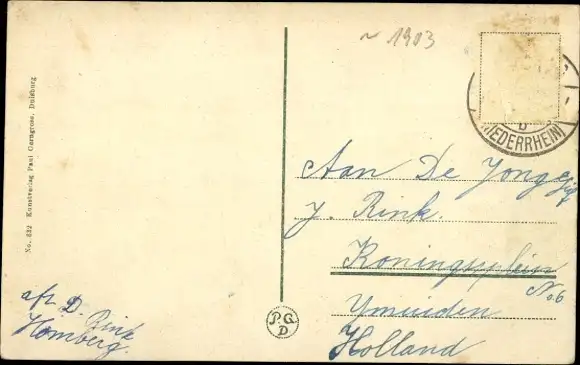 ~ 1903
B
NIEDERRHEIN
Aan De Jongejuf
J. Rink.
Koningsplein
No 6
Ymuiden
Holland
afz. D. Rink
Homberg.
No. 832 Kunstverlag Paul Gerngross, Duisburg
PGD